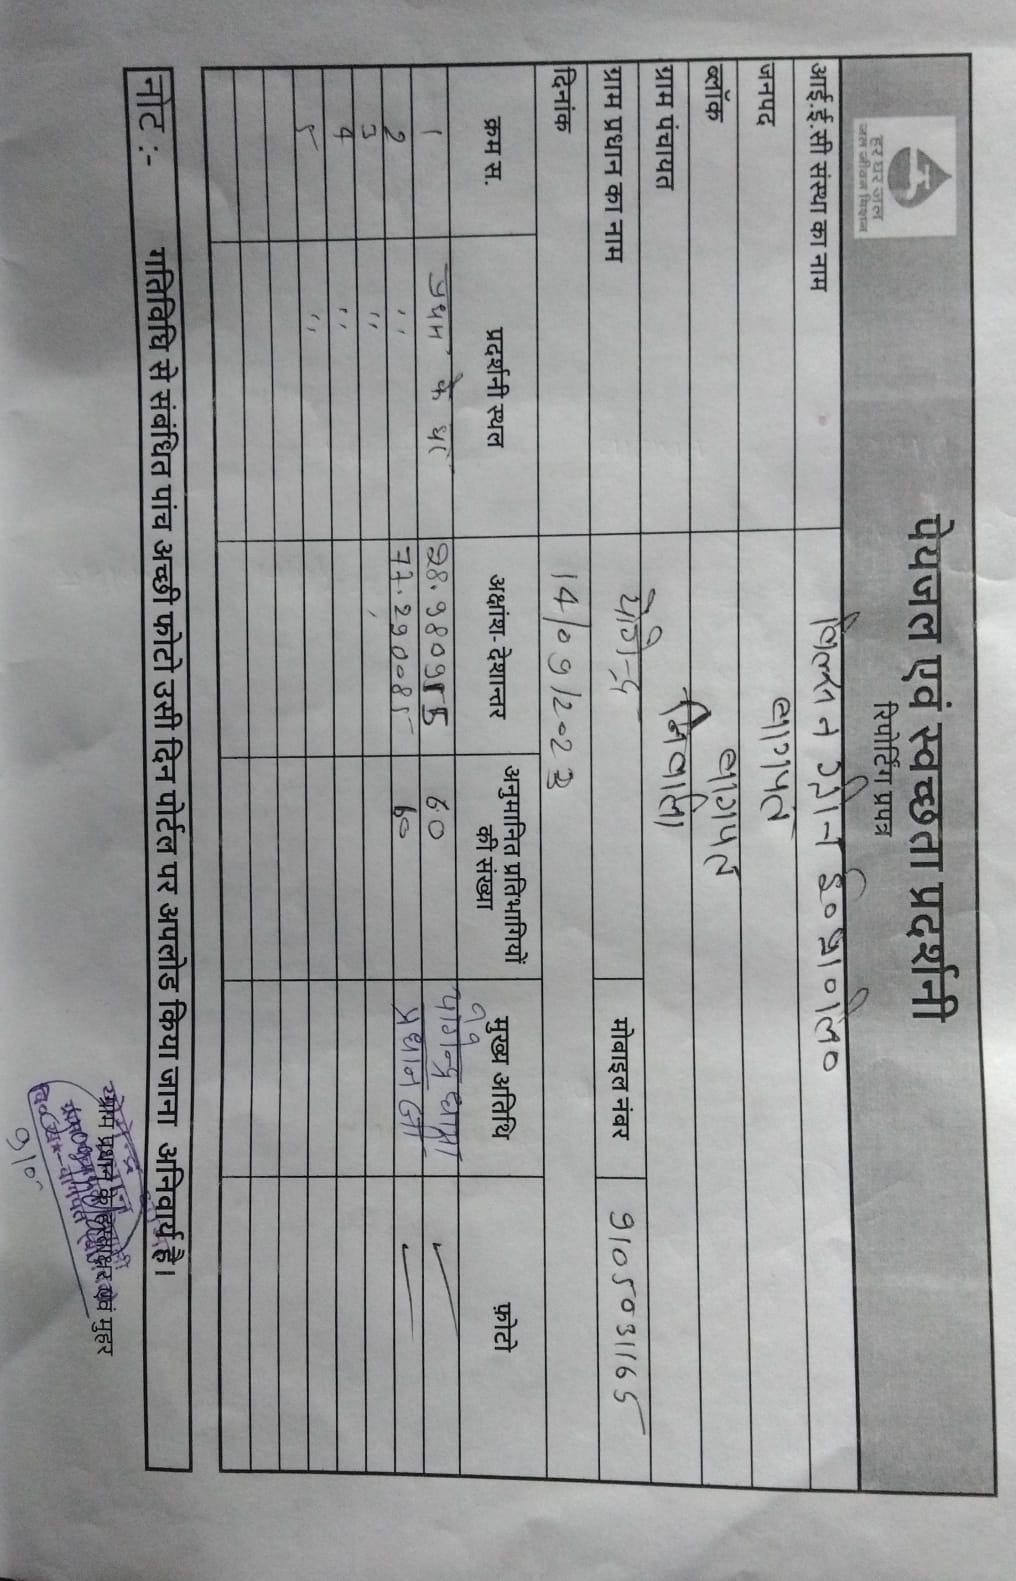 हर घर जल
जल जीवन मिशन
पेयजल एवं स्वच्छता प्रदर्शनी
रिपोर्टिंग प्रपत्र
आई.ई.सी संस्था का नाम
जनपद बागपत
ब्लॉक बागपत
ग्राम पंचायत निवाली
ग्राम प्रधान का नाम योगेन्द्र मोबाइल नंबर 9105031165
दिनांक 14/09/2023
क्रम स. प्रदर्शनी स्थल अक्षांश- देशान्तर अनुमानित प्रतिभागियों की संख्या मुख्य अतिथि फ़ोटो
1 के घर 28.980955 60
2 ,, 77.290085 60 प्रधान जी
3 ,,
4 ,,
5 ,,
नोट :- गतिविधि से संबंधित पांच अच्छी फोटो उसी दिन पोर्टल पर अपलोड किया जाना अनिवार्य है।
ग्राम प्रधान के हस्ताक्षर एवं मुहर